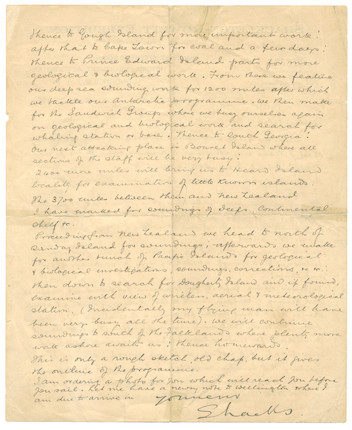 Thence to Gough Island for more important work:
after that to Cape Town for coal and a few days:
thence to Prince Edward Island ports for more
geological & biological work. From there we feature
our deep sea sounding work for 1200 miles after which
we tackle our Antarctic programme. We then make
for the Sandwich Group where we busy ourselves again
on geological and biological work and search for
whaling station or base. Thence to South Georgia:
Our next attacking place is Bouvet Island when all
sections of the staff will be very busy:
2000 more miles will bring us to Heard Island
locality for examination of little known islands.
The 3700 miles between then and New Zealand
I have marked for soundings of deeps, Continental
shelf &c
Proceeding from New Zealand we head to north of
Island for soundings; afterwards we make
for another bunch of Pacific Islands for geological
& biological investigation, soundings, corrections, &c:
then down to search for Dougherty Island and if found,
examine with view of wireless, aerial & meteorological
station, (Incidentally my flying man will have
been very busy all the time): we will continue
soundings to south of the Falklands where plenty more
work ashore awaits us: thence homeward.
This is only a rough sketch, old chap, but it gives
the outline of the programme.
I am ordering a photo for you which will reach you before
you sail. Let me have a to Wellington where I
am due to arrive in
Yours ever
Shacks